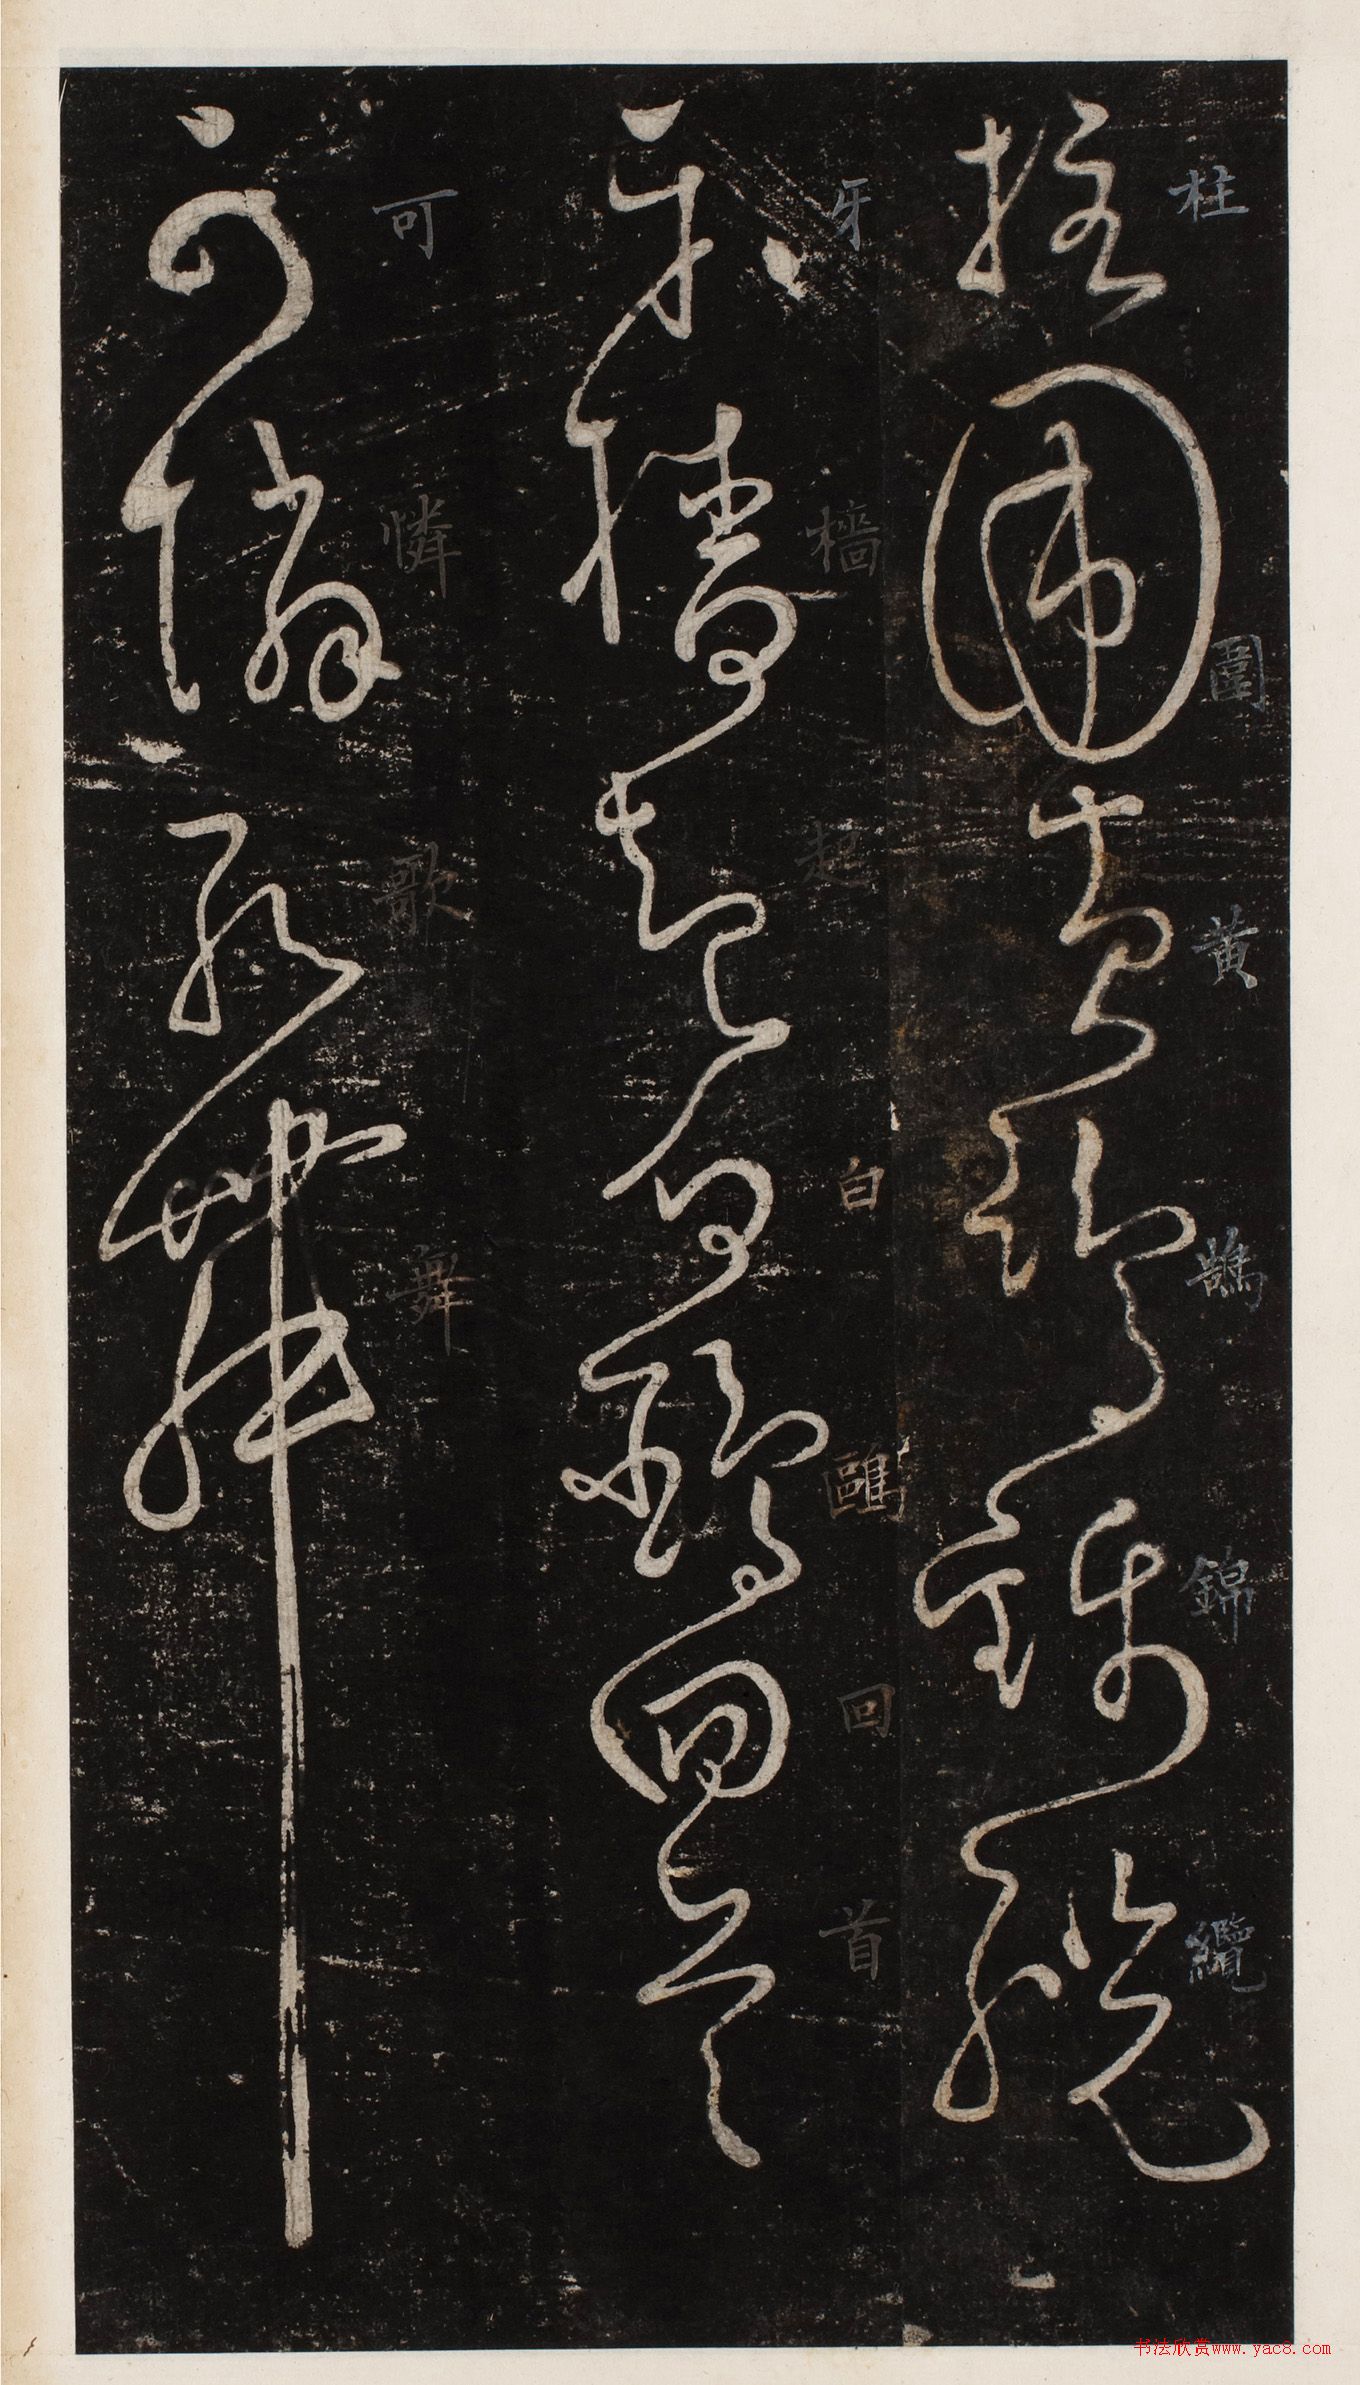 柱圍黄鵠錦纜
牙檣起白鷗回首
可憐歌舞
书法欣赏www.yac8.com